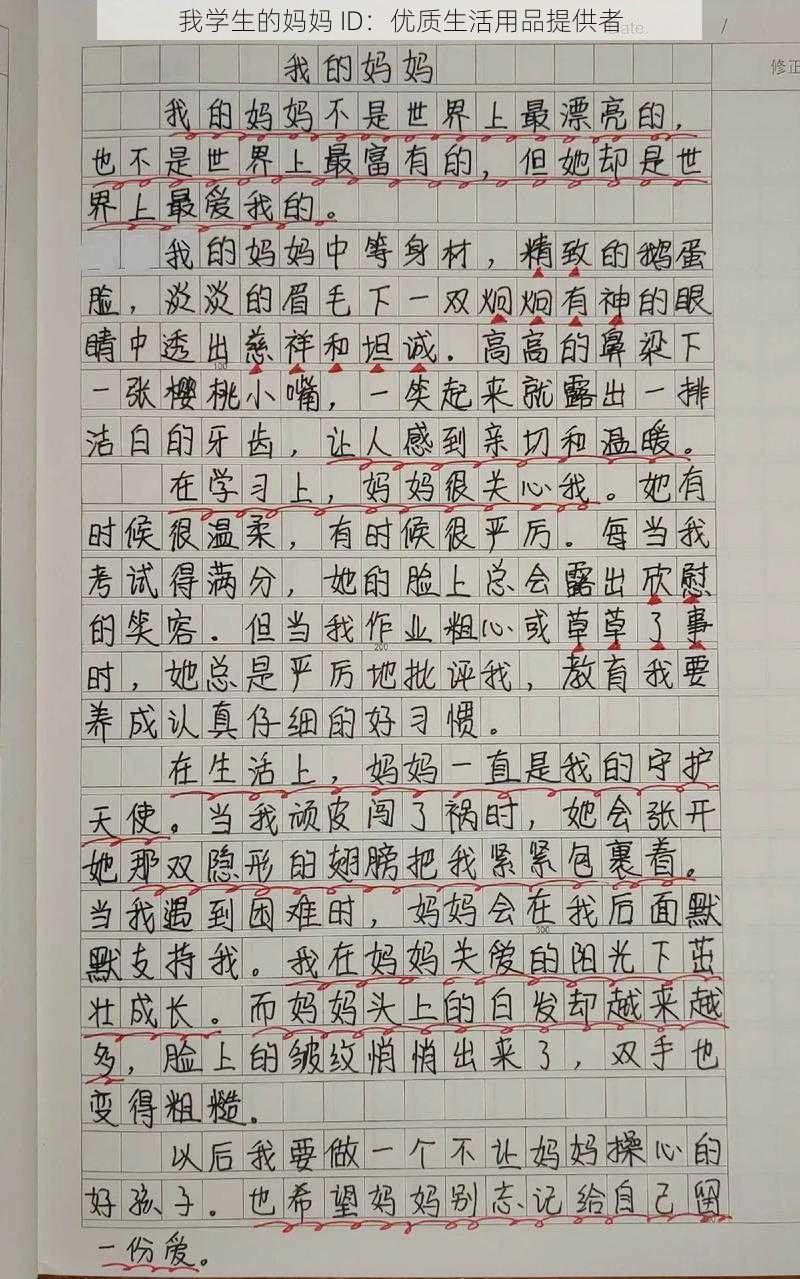 我学生的妈妈 ID：优质生活用品提供者
Date. /
修正
我的妈妈
我的妈妈不是世界上最漂亮的，
也不是世界上最富有的，但她却是世
界上最爱我的。
我的妈妈中等身材，精致的鹅蛋
脸，淡淡的眉毛下一双炯炯有神的眼
睛中透出慈祥和坦诚。高高的鼻梁下
100
一张樱桃小嘴，一笑起来就露出一排
洁白的牙齿，让人感到亲切和温暖。
在学习上，妈妈很关心我。她有
时候很温柔，有时候很严厉。每当我
考试得满分，她的脸上总会露出欣慰
的笑容。但当我作业粗心或草草了事
200
时，她总是严厉地批评我，教育我要
养成认真仔细的好习惯。
在生活上，妈妈一直是我的守护
天使。当我顽皮闯了祸时，她会张开
她那双隐形的翅膀把我紧紧包裹着。
当我遇到困难时，妈妈会在我后面默
300
默支持我。我在妈妈关爱的阳光下茁
壮成长。而妈妈头上的白发却越来越
多，脸上的皱纹悄悄出来了，双手也
变得粗糙。
以后我要做一个不让妈妈操心的
好孩子。也希望妈妈别忘记给自己留
一份爱。